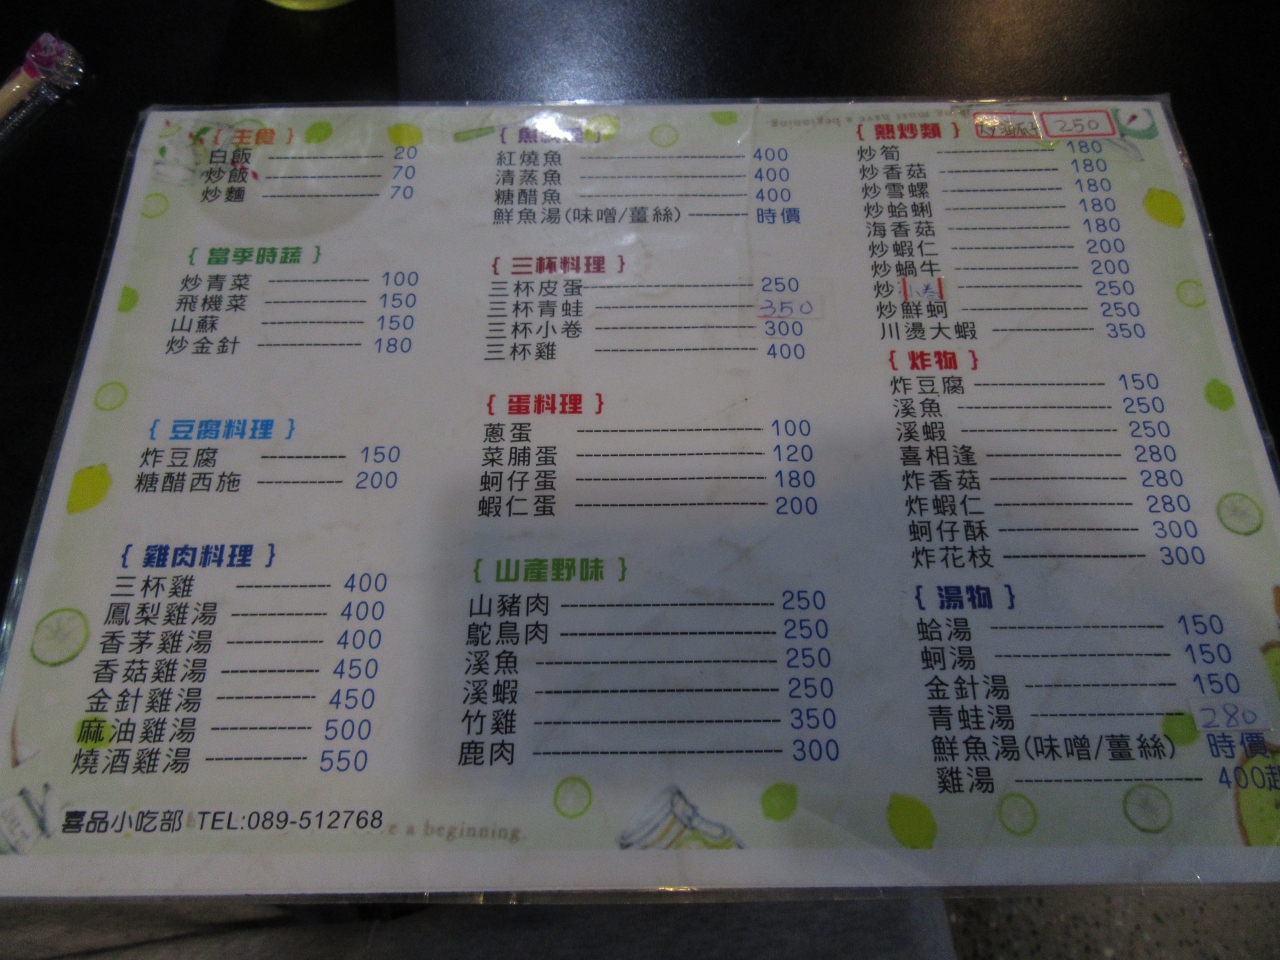 { 主食 }
白飯 20
炒飯 70
炒麵 70
{ 當季時蔬 }
炒青菜 100
飛機菜 150
山蘇 150
炒金針 180
{ 豆腐料理 }
炸豆腐 150
糖醋西施 200
{ 雞肉料理 }
三杯雞 400
鳳梨雞湯 400
香茅雞湯 400
香菇雞湯 450
金針雞湯 450
麻油雞湯 500
燒酒雞湯 550
喜品小吃部 TEL:089-512768
e a beginning.
{ 魚 }
紅燒魚 400
清蒸魚 400
糖醋魚 400
鮮魚湯(味噌/薑絲) 時價
{ 三杯料理 }
三杯皮蛋 250
三杯青蛙 350
三杯小卷 300
三杯雞 400
{ 蛋料理 }
蔥蛋 100
菜脯蛋 120
蚵仔蛋 180
蝦仁蛋 200
{ 山產野味 }
山豬肉 250
鴕鳥肉 250
溪魚 250
溪蝦 250
竹雞 350
鹿肉 300
must have a beginning
{ 熱炒類 }
250
炒筍 180
炒香菇 180
炒雪螺 180
炒蛤蜊 180
海香菇 180
炒蝦仁 200
炒蝸牛 200
炒小卷 250
炒鮮蚵 250
川燙大蝦 350
{ 炸物 }
炸豆腐 150
溪魚 250
溪蝦 250
喜相逢 280
炸香菇 280
炸蝦仁 280
蚵仔酥 300
炸花枝 300
{ 湯物 }
蛤湯 150
蚵湯 150
金針湯 150
青蛙湯 280
鮮魚湯(味噌/薑絲) 時價
雞湯 400起